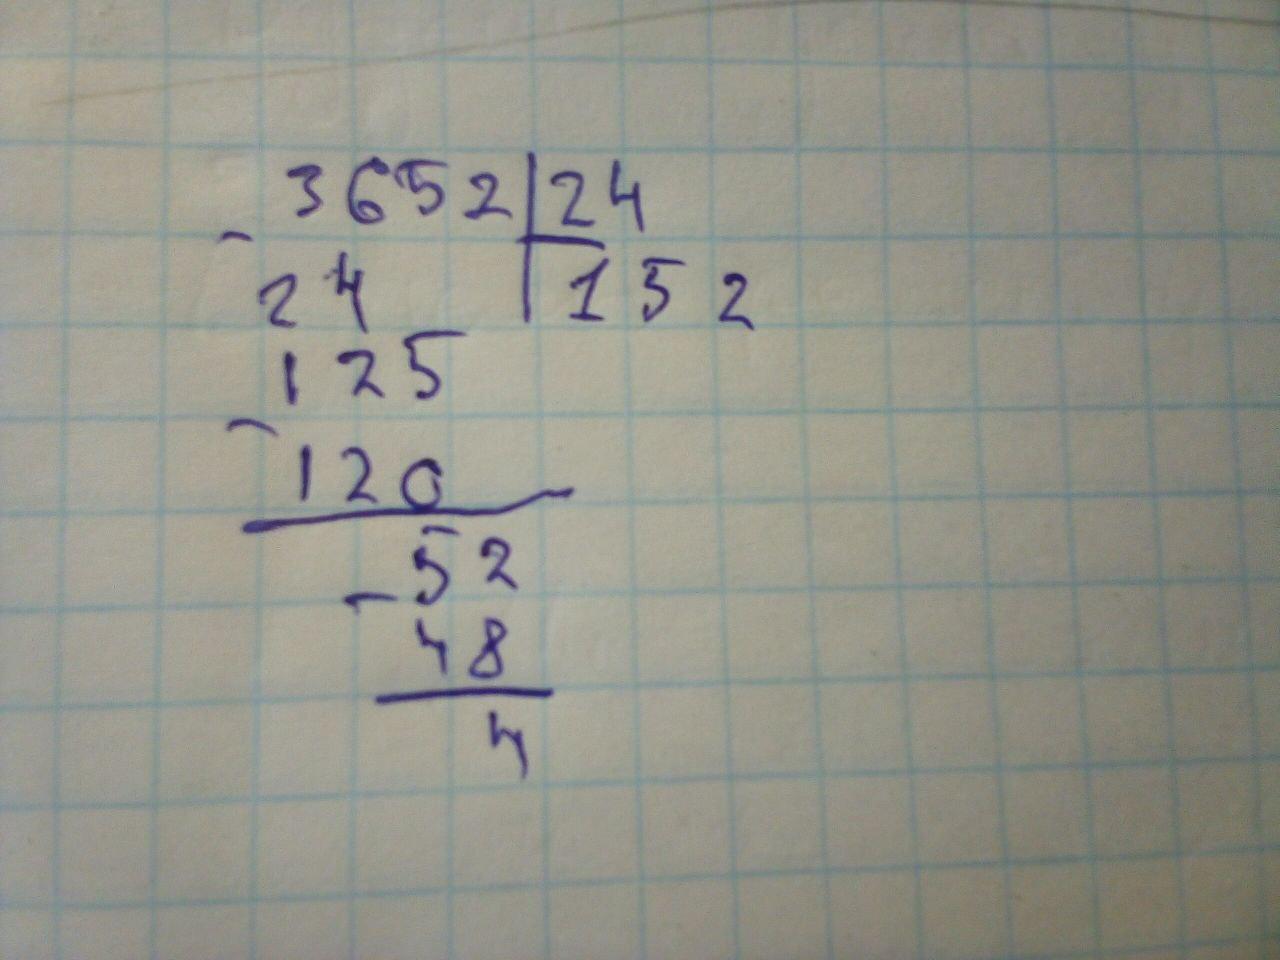 3652 24
- 24 152
125
- 120
- 52
48
4